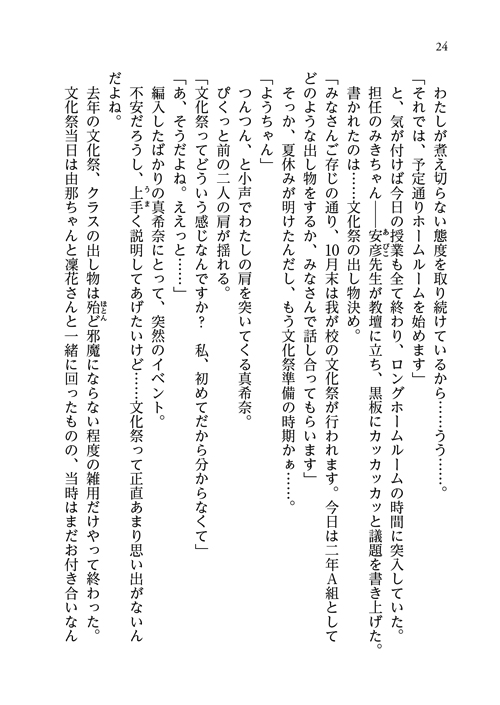 24
わたしが煮え切らない態度を取り続けているから……うう……。
「それでは、予定通りホームルームを始めます」
と、気が付けば今日の授業も全て終わり、ロングホームルームの時間に突入していた。
担任のみきちゃん――安彦先生が教壇に立ち、黒板にカッカッカッと議題を書き上げた。
あびこ
書かれたのは……文化祭の出し物決め。
「みなさんご存じの通り、10月末は我が校の文化祭が行われます。今日は二年A組として
どのような出し物をするか、みなさんで話し合ってもらいます」
そっか、夏休みが明けたんだし、もう文化祭準備の時期かぁ……。
「ようちゃん」
つんつん、と小声でわたしの肩を突いてくる真希奈。
ぴくっと前の二人の肩が揺れる。
「文化祭ってどういう感じなんですか？　私、初めてだから分からなくて」
「あ、そうだよね。ええっと……」
編入したばかりの真希奈にとって、突然のイベント。
不安だろうし、上手く説明してあげたいけど……文化祭って正直あまり思い出がないん
うま
だよね。
去年の文化祭、クラスの出し物は殆ど邪魔にならない程度の雑用だけやって終わった。
ほとん
文化祭当日は由那ちゃんと凜花さんと一緒に回ったものの、当時はまだお付き合いなん